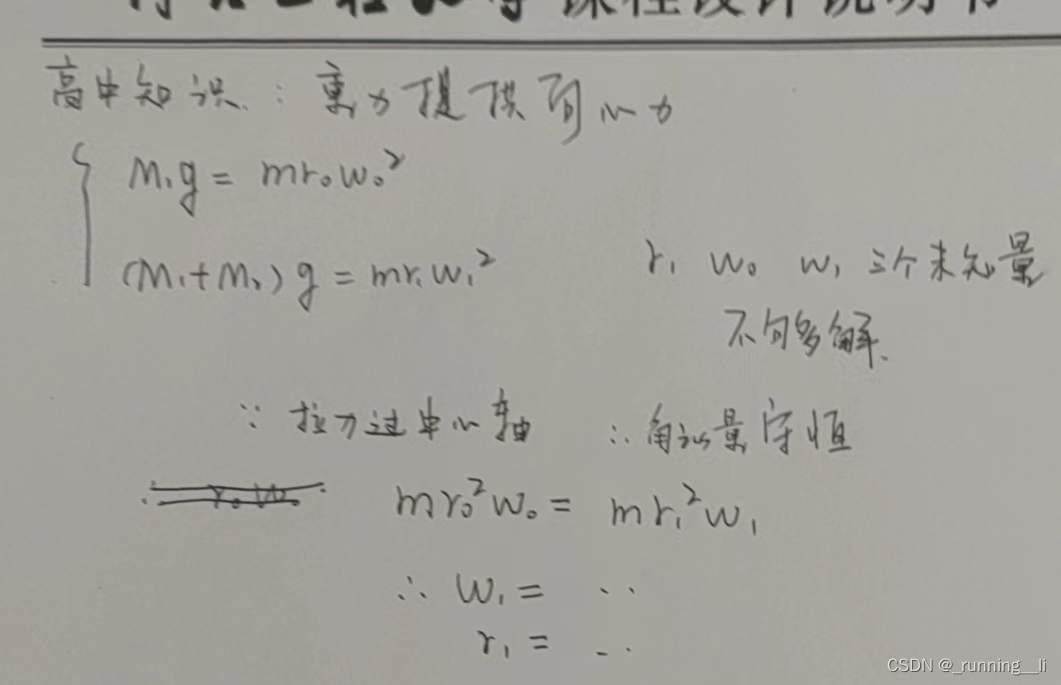 课程设计说明书
高中知识：重力提供向心力
M₁g = mr₀w₀²
(M₁+M₂)g = mr₁w₁²
r₁ w₀ w₁ 三个未知量
不句多解.
∵ 拉力过中心轴 ∴ 角动量守恒
mr₀²w₀ = mr₁²w₁
∴ w₁ = ..
r₁ = ..
CSDN @_running__li